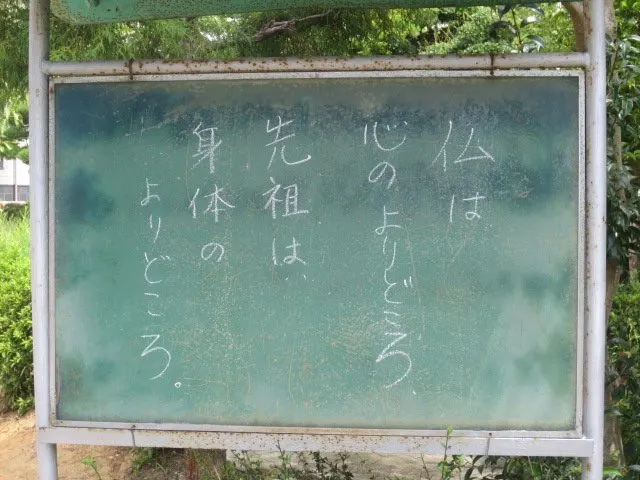 仏は
心のよりどころ、
先祖は、
身体の
よりどころ。